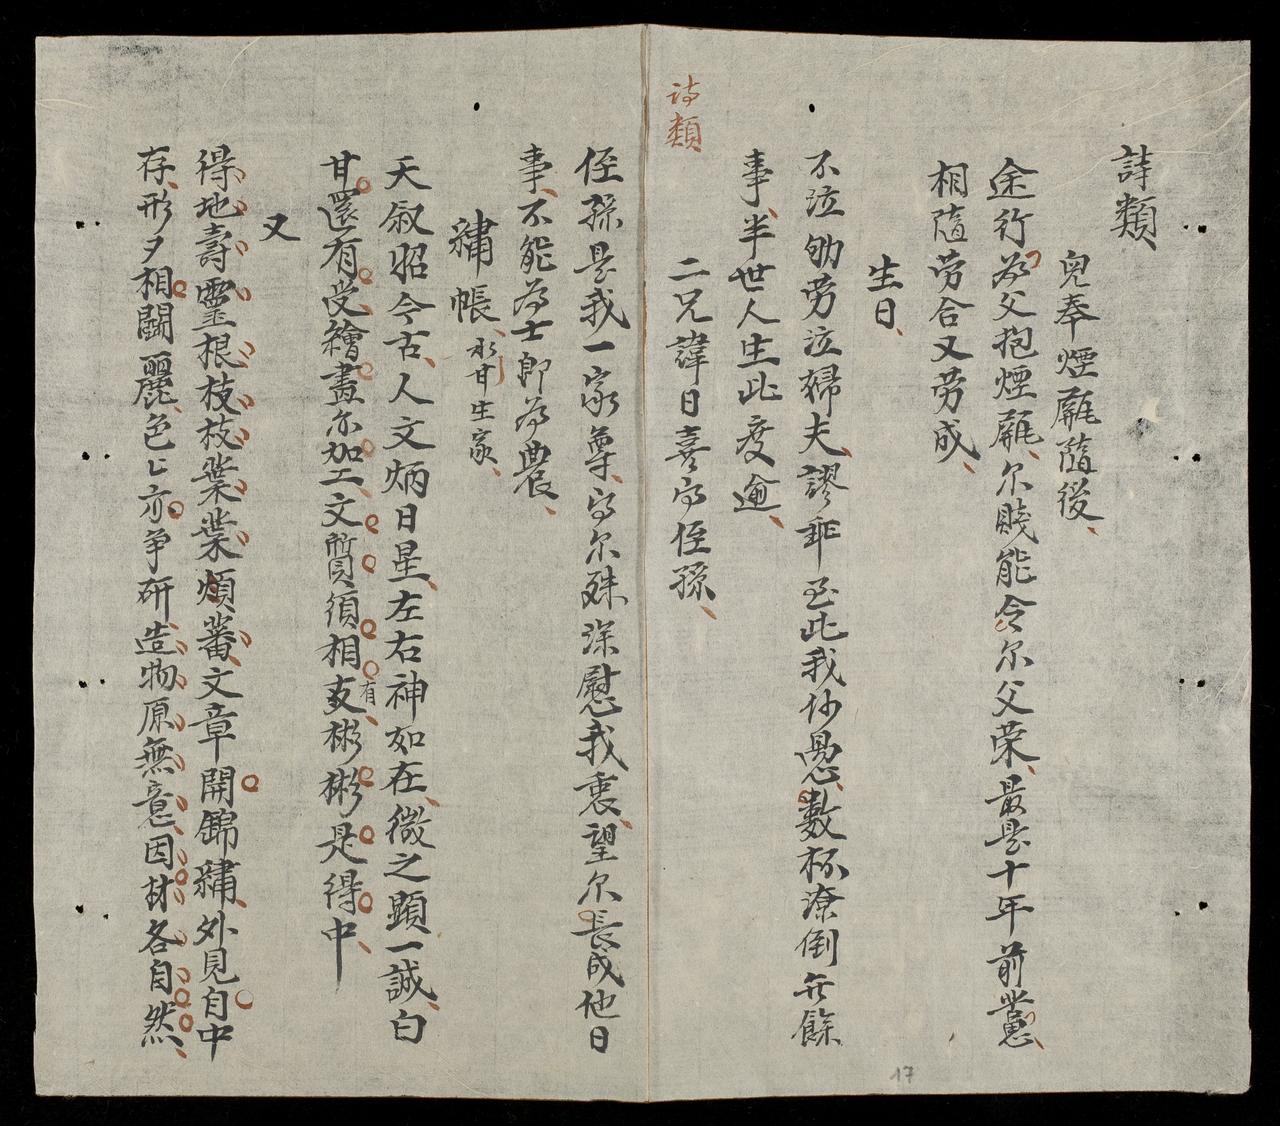 詩類
兒奉煙甌隨後
途行為父抱煙甌尔賤能令尔父荣最是十年前業
相隨劳合又劳成
生日
不泣劬劳泣婦夫謬乖至此我仍愚數杯潦倒無餘
事半世人生此度逾
詩類
二兄諱日喜字侄孫
侄孫是我一家尊字尔殊深慰我衷望尔長成他日
事不能為士即為農
繡帳
甘生家
天叙昭今古人文炳日星左右神如在微之顯一誠白
甘還有受繪畫尔加工文質須相支彬彬是得中
有
又
得地壽靈根枝枝業業煩蕃文章開錦繡外見自中
存形夕相鬬麗色匕亦争研造物原無意因材各自然
17